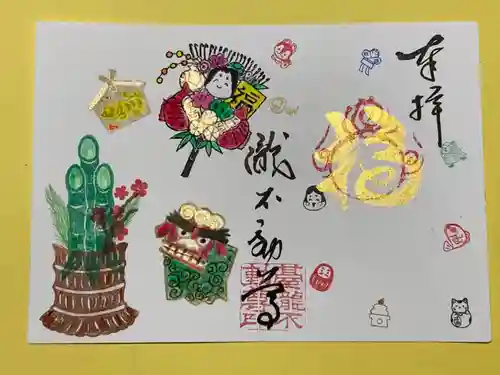 奉拝
福
瀧不動尊
福